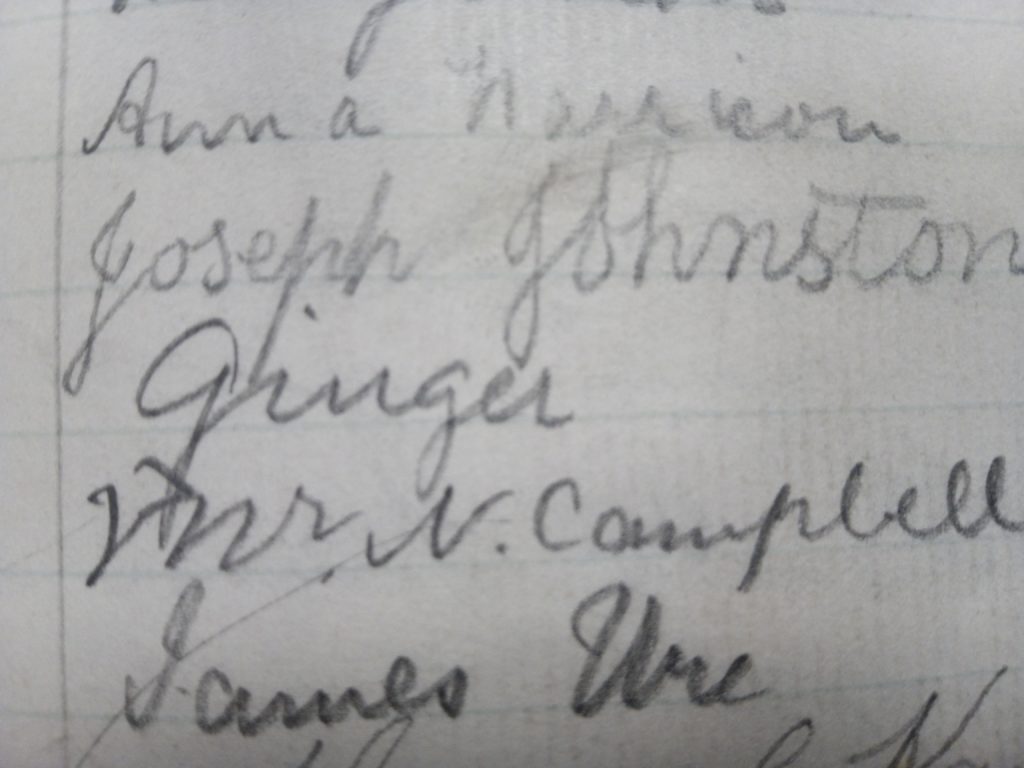 Anna
Joseph Johnston
Ginger
Mr. N. Campbell
James Ure